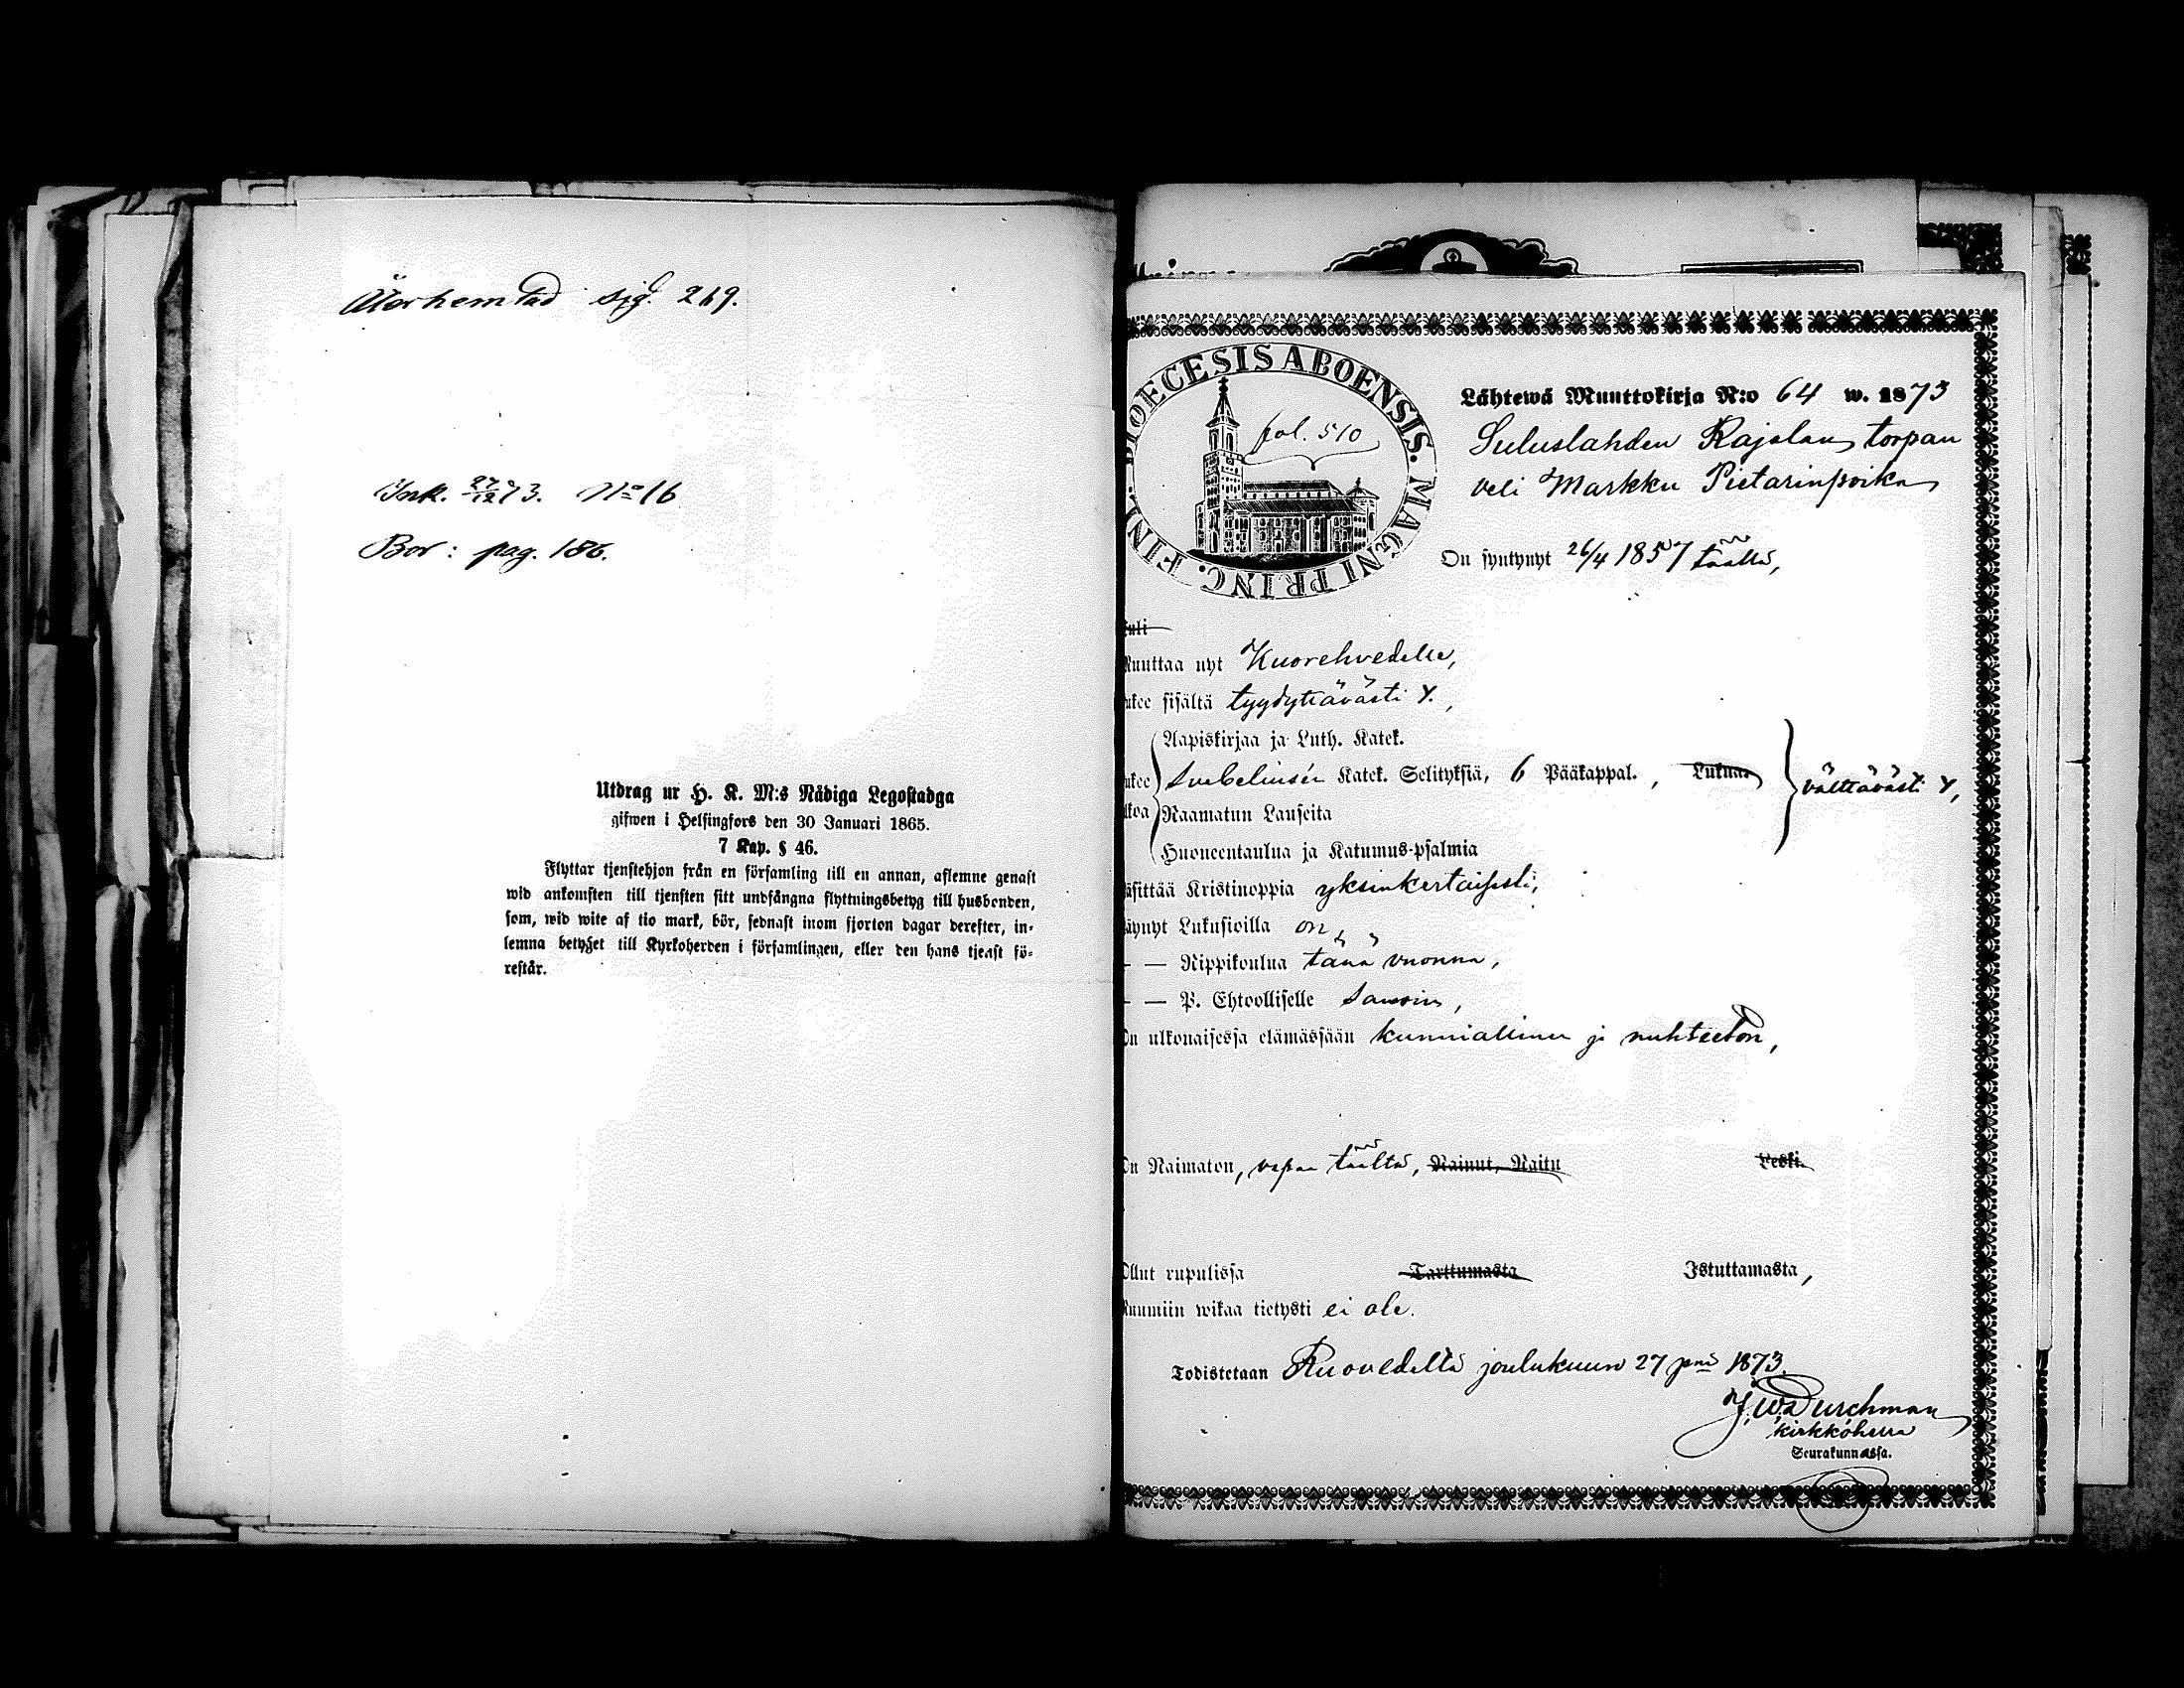 Återhemtad sid. 219.
Ink. 27/12 73. No 16
Bor: pag. 186.
Utdrag ur H. K. M:s Nådiga Legostadga
gifwen i Helsingfors den 30 Januari 1865.
7 Kap. § 46.
Flyttar tjenstehjon från en församling till en annan, aflemne genast
wid ankomsten till tjensten sitt undfångna flyttningsbetyg till husbonden,
som, wid wite af tio mark, bör, sednast inom fjorton dagar derefter, in-
lemna betyget till Kyrkoherden i församlingen, eller den hans tjenst fö-
restår.
DIOECESIS ABOENSIS. MAGNI PRINC. FINL.
fol. 510
Lähtewä Muuttokirja N:o 64 w. 1873
Suluslahden Rajalan torpan
veli Markku Pietarinpoika
On syntynyt 26/4 1857 täällä,
uli
uuttaa nyt Kuorehvedelle,
ukee sisältä tyydyttävästi Y.,
Aapiskirjaa ja Luth. Katek.
ukee Svebeliusén Katek. Selityksiä, 6 Pääkappal., Lukua, välttävästi Y,
lkoa Raamatun Lauseita
Huoneentaulua ja Katumus-psalmia
äsittää Kristinoppia yksinkertaisesti,
äynyt Lukusioilla on,
— — Rippikoulua tänä vuonna,
— — P. Ehtoolliselle samoin,
On ulkonaisessa elämässään kunniallinen ja nuhteeton,
On Naimaton, vapaa täältä, Nainut, Naitu Leski.
Ollut rupulissa Tarttumasta Istuttamasta,
uumiin wikaa tietysti ei ole.
Todistetaan Ruovedellä joulukuun 27 pnä 1873.
J. W. Durchman
kirkkoherra
Seurakunnassa.